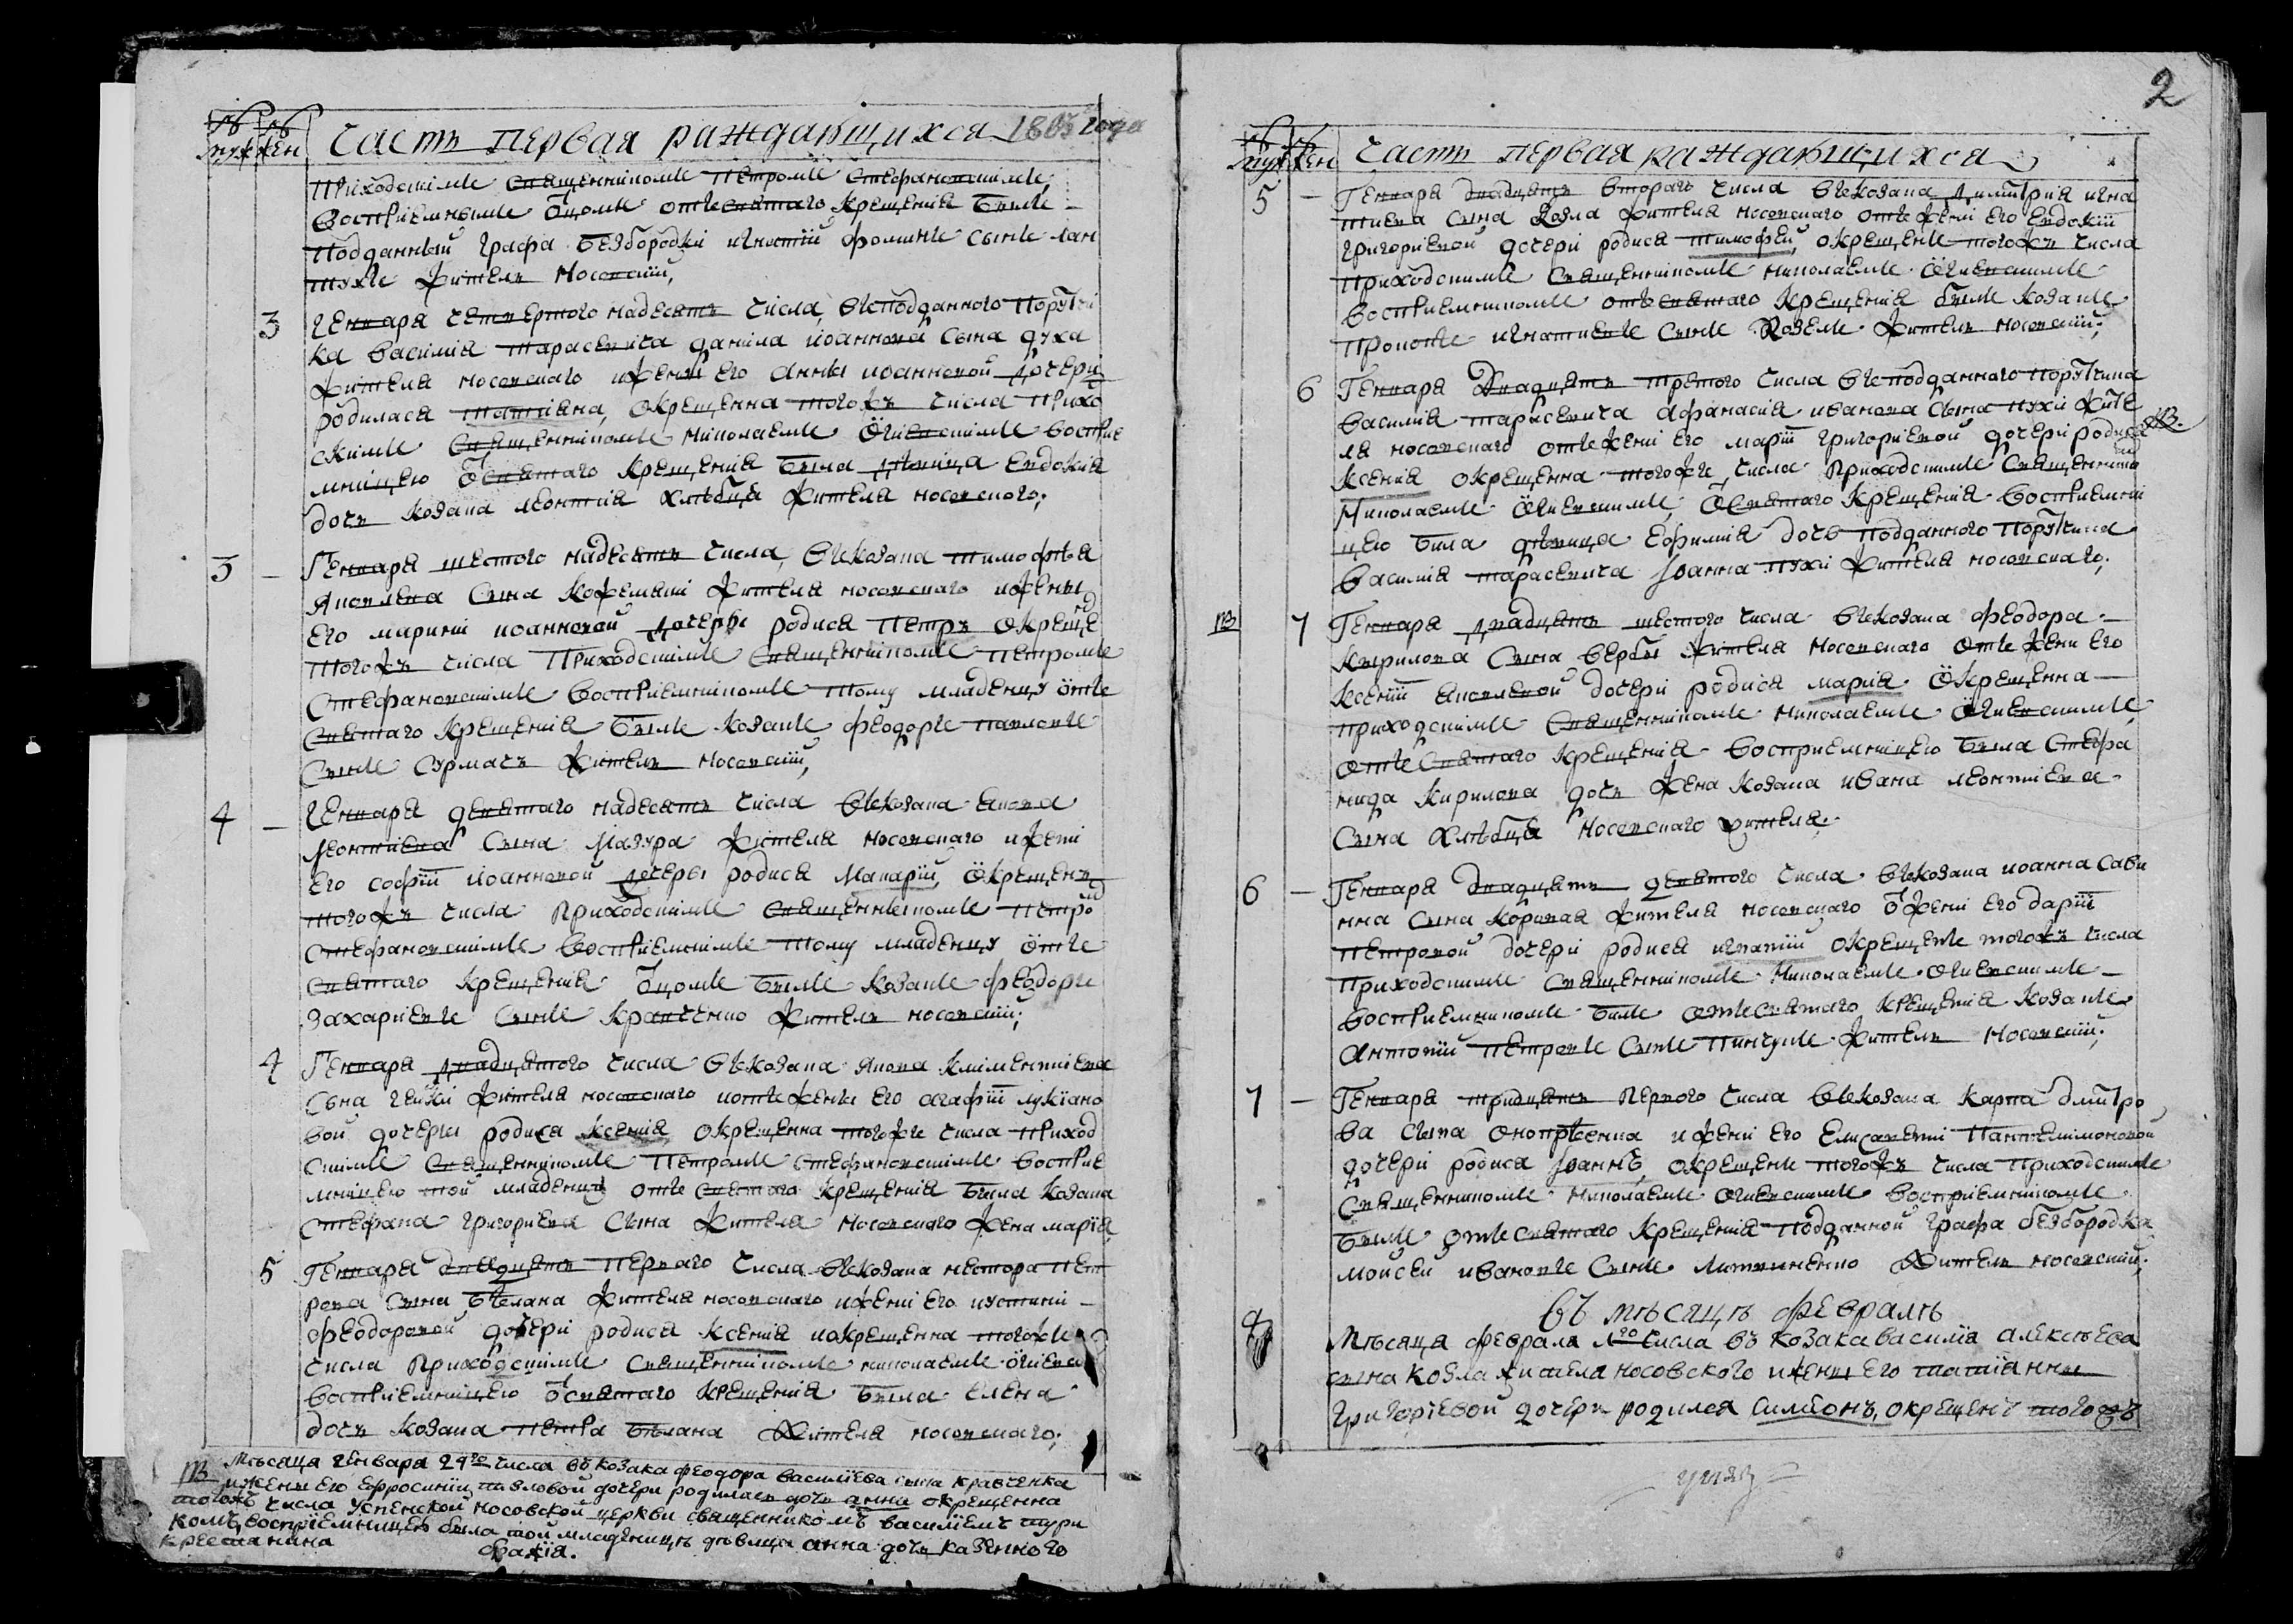 № муж
№ жен
Часть первая раждающихся 1803 года
приходскимъ священникомъ Петромъ Стефановскимъ,
восприемнымъ отцомъ отъ святаго крещенія былъ
подданный графа Безбородки Игнатій Фоминъ сынъ
житель носовскій,
3
Генваря четвертого надесять числа, въ подданного поручи
ка Василія Тарасевича Данила Иоаннова сына Духа
жителя носовского и жены его Анны Иоанновой дочери
родилася Татіана, окрещенна тогожъ числа прихо
скимъ священникомъ Николаемъ Огиевскимъ восприе
мницею ѿ святаго крещенія была дѣвица Евдокія
дочь козака Леонтія Хлѣбца жителя носовского;
3 —
Генваря шестого надесять числа, въ козака Тимофѣя
Яковлева сына Кожемяки жителя носовского и жены
его Марини Иоанновой дочеры родися Петръ окреще
тогожъ числа приходскимъ священникомъ Петромъ
Стефановскимъ восприемникомъ тому младенцу отъ
святаго крещенія былъ козакъ Феодоръ Павловъ
сынъ Сурмачъ житель носовскій,
4 —
Генваря девятаго надесять числа въ козака Якова
Леонтіева сына Мазура жителя носовского и жени
его Софіи Иоанновой дочеры родися Макарій, окрещенъ
тогожъ числа приходскимъ священникомъ Петро
Стефановскимъ восприемнимъ тому младенцу отъ
святаго крещенія отцомъ былъ козакъ Феодоръ
Захаріевъ сынъ Кравченко житель носовскій;
4
Генваря двадцятого числа въ козака Якова Климентіева
сына жителя носовского и отъ жены его Агафіи Лукіано
вой дочеры родися Ксенія окрещенна тогожъ числа приход
скимъ священникомъ Петромъ Стефановскимъ восприе
мницею той младеницѣ отъ святаго крещенія была козака
Стефана Григориева сына жителя носовского жена Марія
5
Генваря двадцять первого числа въ козака Нестора Пет
рова сына Бѣлана жителя носовского и жени его Иустини —
Феодоровой дочери родися Ксенія и окрещенна тогожъ
числа приходскимъ священникомъ Николаемъ Огиевс
восприемницею ѿ святаго крещенія была Елена
дочь козака Петра Бѣлана жителя носовского;
NB
Мѣсяца Генваря 24го числа въ козака Феодора Василіева сина Кравченка
и жены его Ефросиніи Павловой дочери родилась дочь Анна окрещенна
тогожъ числа Успенской носовской церкви священникомъ Василіемъ Тури
комъ, воспріемницею была той младеницѣ дѣвица Анна дочь казенного
крестянина

2
№ муж
№ жен
Часть первая раждающихся
5 —
Генваря двадцять второго числа въ козака Димитрія Игна
тиева сына Козла жителя носовского отъ жени его Евдокіи
Григориевой дочери родися Тимофей, окрещенъ тогожъ числа
приходскимъ священникомъ Николаемъ Огиевскимъ
восприемникомъ отъ святаго крещенія былъ козакъ
Прокопъ Игнатиевъ сынъ Козелъ житель носовскій;
6
Генваря двадцять третого числа въ подданного поручика
Василія Тарасевича Афанасія Иванова сына жите
ля носовского отъ жени его Маріи Григориевой дочери родися NB.
Ксенія окрещенна тогожъ числа приходскимъ священнико
Николаемъ Огиевскимъ, ѿ святаго крещенія восприемни
цею была дѣвица Ефимія дочь подданного поручика
Василія Тарасевича Іоанна жителя носовского;
NB
7
Генваря двадцять шестого числа въ козака Феодора —
Кирилова сына Вербы жителя носовского отъ жени его
Ксеніи Яковлевой дочери родися Марія окрещенна —
приходскимъ священникомъ Николаемъ Огиевскимъ,
отъ святаго крещенія восприемницею была Стефа
нида Кирилова дочь жена козака Ивана Леонтиева
сына Хлѣбца носовского жителя.
6 —
Генваря двадцять девятого числа въ козака Иоанна Сави
на сына жителя носовского ѿ жени его Даріи
Петровой дочери родися Игнатій окрещенъ тогожъ числа
приходскимъ священникомъ Николаемъ Огиевскимъ —
восприемникомъ былъ отъ святаго крещенія козакъ
Антоній Петровъ сынъ житель носовскій;
7 —
Генваря тридцять первого числа въ козака Карпа Дмитро
ва сына Оноприенка и жени его Елисавети Пантелимоновой
дочери родися Іоаннъ, окрещенъ тогожъ числа приходскимъ
священникомъ Николаемъ Огиевскимъ восприемникомъ
былъ отъ святаго крещенія подданной графа Безбородка
Мойсей Ивановъ сынъ Литвиненко житель носовскій.
Въ мѣсяцѣ Февралѣ
8
Мѣсяца Февраля 1го числа въ козака Василія Алексѣева
сына Козла жителя носовского и жены его Татіанны
Григоріевой дочери родился Симеонъ, окрещенъ тогожъ